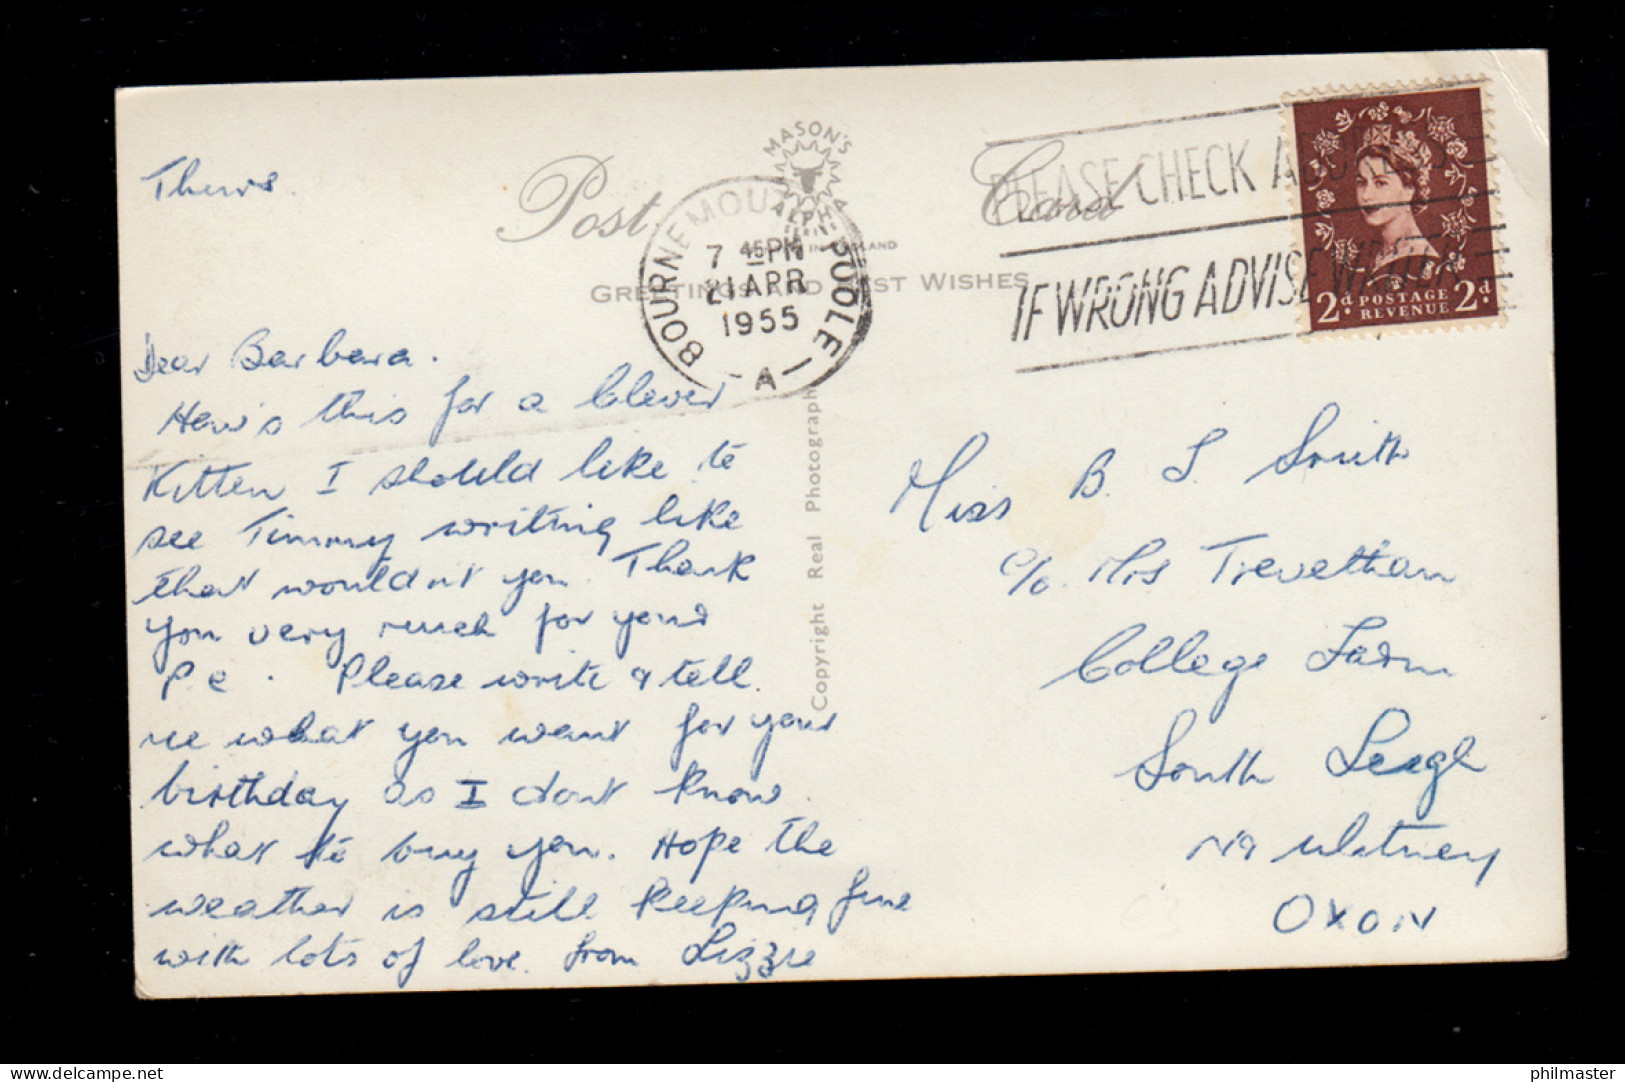 Thurs.
Post Card
MASON'S
ALPHA
SERIES
GREETINGS AND BEST WISHES
BOURNEMOUTH POOLE
7 45PM
21 APR
1955
A
PLEASE CHECK
IF WRONG ADVISE WRITER
2d. POSTAGE 2d.
REVENUE
Dear Barbara.
How's this for a Clever
Kitten I should like to
see Timmy writing like
that wouldnt you. Thank
you very much for your
P.c. Please write & tell
me what you want for your
birthday as I dont know
what to buy you. Hope the
weather is still keeping fine
with lots of love. from Lizzie
Copyright Real Photograph
Miss B. J. Smith
c/o. Mrs Trevethan
College Farm
South Leigh
Nr Witney
OXON
delcampe.net
philmaster